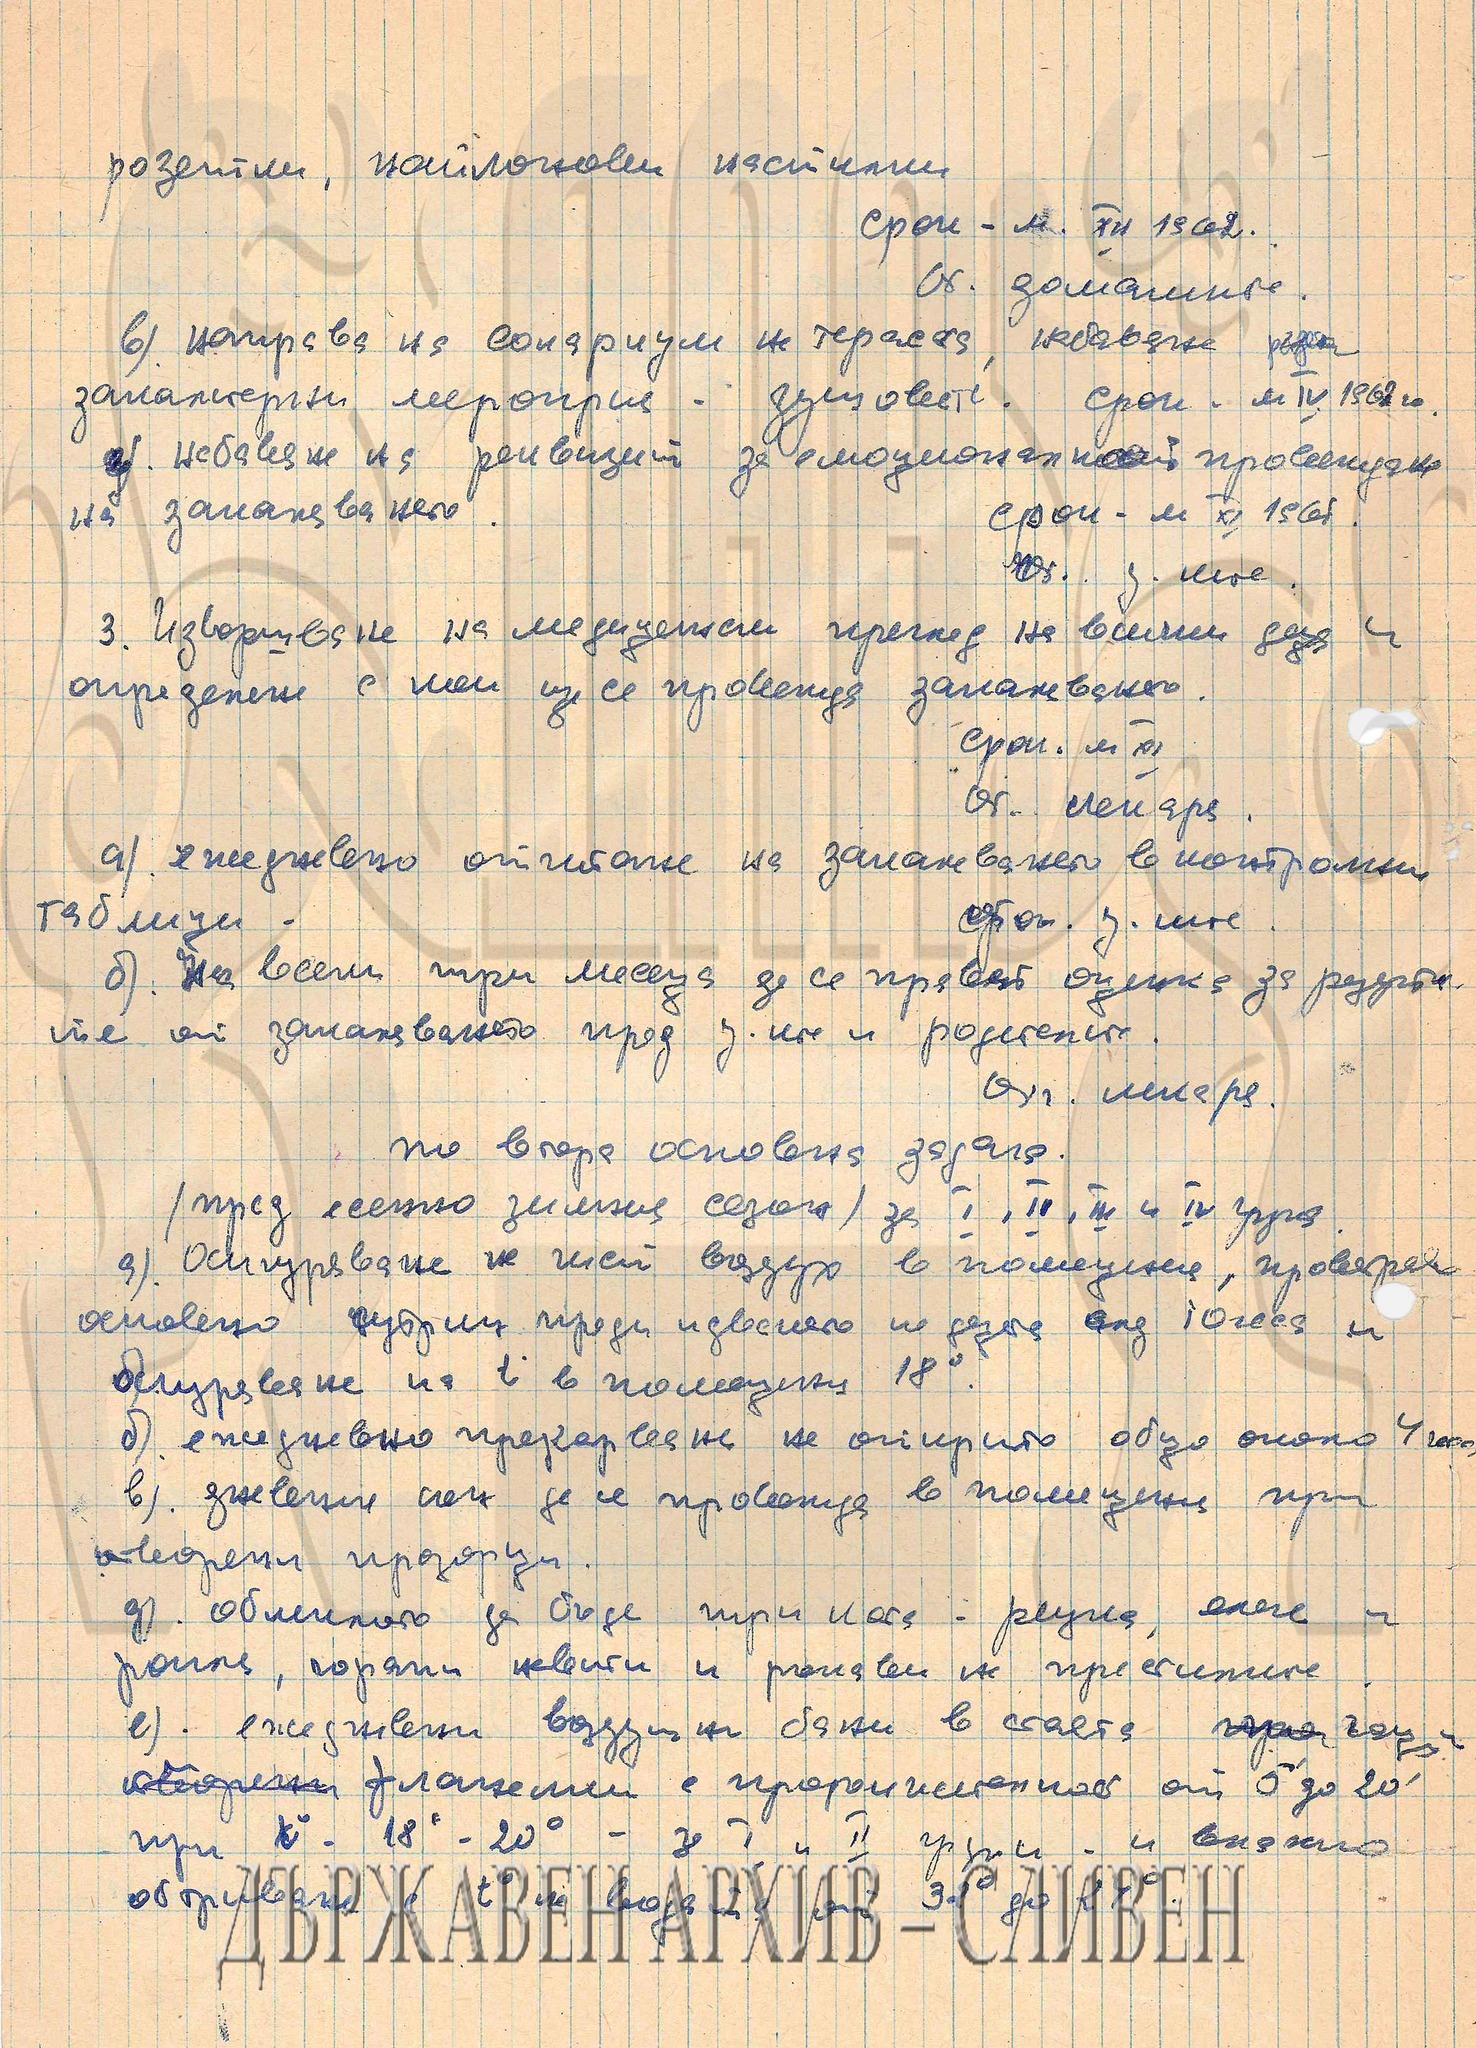 розетки, найлонови настилки
срок - м. XII 1962.
От. домакинте.
в/ направа на солариум на терасата, набавяне
закалителни мероприя - душове. срок - м IV. 1962 г.
г/. набавяне на реквизит за емоционалност провежда
на закаляването. срок - м XI 1961.
От. у. ките.
3. Извършване на медицински преглед на всички деца и
определяне с кои ще се провежда закаляването.
срок. м XI
От. лекаря.
а/. ежедневно отчитане на закаляването в контролни
таблици - От. у. ките.
б). На всеки три месеца да се прават оценка за резулта-
те от закаляването пред у. ките и родителите.
Отг. лекаря.
по втора основна задача.
/пред есенно зимния сезон/ за I, II, III и IV група.
а). Осигуряване на чист въздух в помещения,
основно сутрин преди идването на децата след 10 часа и
осигуряване на t° в помещения 18°.
б). ежедневно прекарване на открито общо около 4 часа
в). дневния сън да се провежда в помещения при
отворени прозорци.
д). облеклото да бъде три ката - ризка, елек и
ролка, чорапи и ръкави на престилките.
е). ежедневни въздушни бани в стаята гащи и
фланелки с продължителност от 5' до 20'
при t° - 18° - 20° - за I и II групи - и влажно
обтриване с t° на водата от до
ДЪРЖАВЕН АРХИВ – СЛИВЕН